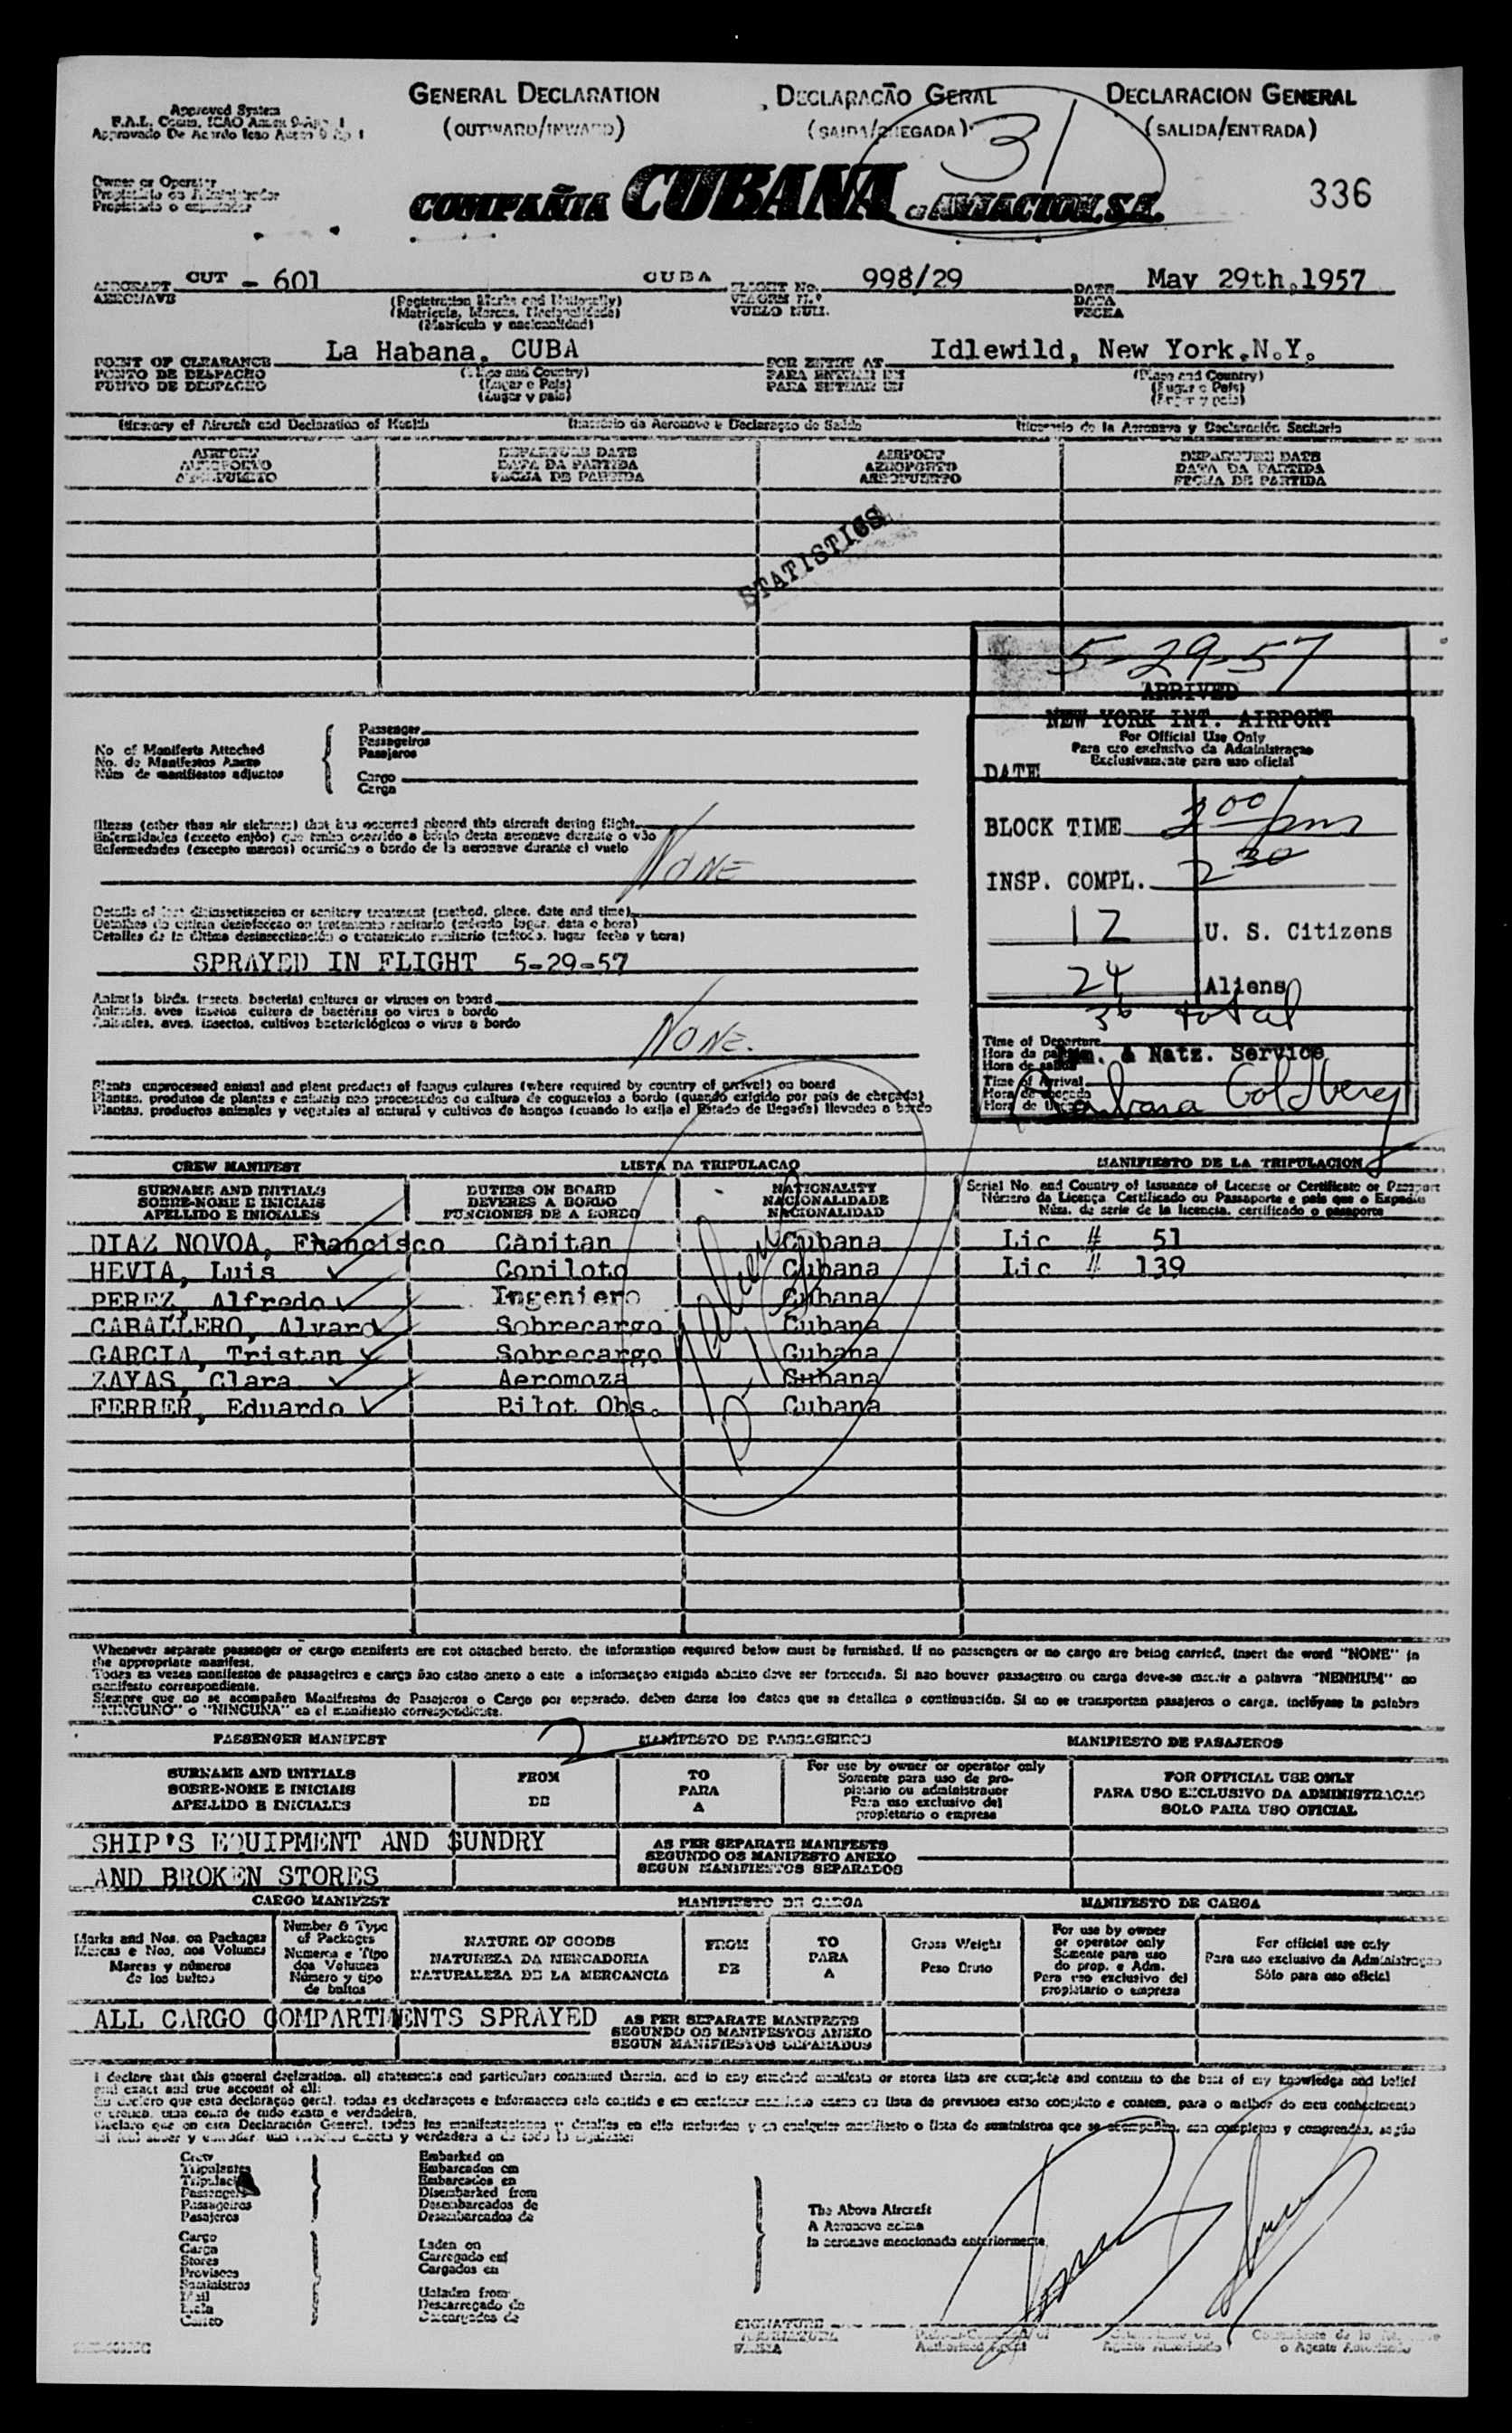 GENERAL DECLARATION
(OUTWARD/INWARD)
DECLARAÇÃO GERAL
(SAIDA/CHEGADA)
DECLARACION GENERAL
(SALIDA/ENTRADA)
Approved System
31
Owner or Operator
COMPAÑIA CUBANA de AVIACION, S.A.
336
AIRCRAFT CUT - 601 CUBA FLIGHT No. 998/29 DATE May 29th, 1957
AERONAVE
VIAGEM N.º DATA
VUELO NUM. FECHA
(Registration Marks and Nationality)
(Matricula, Marcas, Nacionalidade)
(Matricula y nacionalidad)
POINT OF CLEARANCE La Habana, CUBA FOR ENTRY AT Idlewild, New York, N.Y.
PONTO DE DESPACHO (Place and Country) PARA ENTRAR EM (Place and Country)
PUNTO DE DESPACHO (Lugar e Pais) PARA ENTRAR EN (Lugar e Pais)
(Lugar y pais) (Lugar y pais)
Itinerary of Aircraft and Declaration of Health Itinerário da Aeronave e Declaraçao de Saúde Itinerario de la Aeronave y Declaración Sanitaria
AIRPORT DEPARTURE DATE AIRPORT DEPARTURE DATE
AEROPORTO DATA DA PARTIDA AEROPORTO DATA DA PARTIDA
AEROPUERTO FECHA DE PARTIDA AEROPUERTO FECHA DE PARTIDA
STATISTICS
5-29-57
ARRIVED
NEW YORK INT. AIRPORT
For Official Use Only
Para uso exclusivo da Administraçao
Exclusivamente para uso oficial
DATE
No of Manifests Attached
No. de Manifestos Anexo
Núm de manifiestos adjuntos
Passenger
Passageiros
Pasajeros
Cargo
Carga
BLOCK TIME 2 00 pm
INSP. COMPL. 2 30
12 U. S. Citizens
24 Aliens
36 total
Time of Departure
Hora de salida
Im. & Natz. Service
Time of Arrival
Barbara Goldberg
Illness (other than air sickness) that has occurred aboard this aircraft during flight
Enfermidades (exceto enjôo) que tenha ocorrido a bordo desta aeronave durante o vôo
Enfermedades (excepto mareos) ocurridas a bordo de la aeronave durante el vuelo
NONE
Details of last disinsectization or sanitary treatment (method, place, date and time)
Detalles de la última desinsectización o tratamiento sanitario (método, lugar fecha y hora)
SPRAYED IN FLIGHT 5-29-57
Animals birds, insects, bacterial cultures or viruses on board
Animais, aves insetos cultura de bactérias ou virus a bordo
Animales, aves, insectos, cultivos bacteriológicos o virus a bordo
NONE.
Plants unprocessed animal and plant products of fungus cultures (where required by country of arrival) on board
Plantas, produtos de plantas e animais nao processados ou cultura de cogumelos a bordo (quando exigido por pais de chegada)
Plantas, productos animales y vegetales al natural y cultivos de hongos (cuando lo exija el Estado de llegada) llevados a bordo
CREW MANIFEST LISTA DA TRIPULACAO MANIFIESTO DE LA TRIPULACION
SURNAME AND INITIALS DUTIES ON BOARD NATIONALITY Serial No. and Country of Issuance of License or Certificate or Passport
SOBRE-NOME E INICIAIS DEVERES A BORDO NACIONALIDADE Número da Licença, Certificado ou Passaporte e pais que o Expediu
APELLIDO E INICIALES FUNCIONES DE A BORDO NACIONALIDAD Núm. de serie de la licencia, certificado o pasaporte
DIAZ NOVOA, Francisco Capitan Cubana Lic # 51
HEVIA, Luis Copiloto Cubana Lic # 139
PEREZ, Alfredo Ingeniero Cubana
CABALLERO, Alvaro Sobrecargo Cubana
GARCIA, Tristan Sobrecargo Cubana
ZAYAS, Clara Aeromoza Cubana
FERRER, Eduardo Pilot Obs. Cubana
Whenever separate passenger or cargo manifests are not attached hereto, the information required below must be furnished. If no passengers or no cargo are being carried, insert the word "NONE" in
the appropriate manifest.
Todas as vezes manifestos de passageiros e carga nao estao anexo a este a informaçao exigida abaixo deve ser fornecida. Si nao houver passageiro ou carga deve-se inserir a palavra "NENHUM" no
manifesto correspondiente.
Siempre que no se acompañen Manifiestos de Pasajeros o Cargo por separado, deben darse los datos que se detallan a continuación. Si no se transportan pasajeros o carga, inclúyase la palabra
"NINGUNO" o "NINGUNA" en el manifiesto correspondiente.
2
PASSENGER MANIFEST MANIFESTO DE PASSAGEIROS MANIFIESTO DE PASAJEROS
SURNAME AND INITIALS FROM TO For use by owner or operator only FOR OFFICIAL USE ONLY
SOBRE-NOME E INICIAIS DE PARA Somente para uso de proprietario ou administrador PARA USO EXCLUSIVO DA ADMINISTRACAO
APELLIDO E INICIALES A Para uso exclusivo del propietario o empresa SOLO PARA USO OFICIAL
SHIP'S EQUIPMENT AND SUNDRY
AND BROKEN STORES
AS PER SEPARATE MANIFESTS
SEGUNDO OS MANIFESTO ANEXO
SEGUN MANIFIESTOS SEPARADOS
CARGO MANIFEST MANIFIESTO DE CARGA MANIFESTO DE CARGA
Marks and Nos. on Packages
Marcas e Nos. nos Volumes
Marcas y números
de los bultos
Number & Type
of Packages
Numeros e Tipo
dos Volumes
Número y tipo
de bultos
NATURE OF GOODS
NATUREZA DA MERCADORIA
NATURALEZA DE LA MERCANCIA
FROM
DE
TO
PARA
A
Gross Weight
Peso Bruto
For use by owner
or operator only
Somente para uso
do prop. e Adm.
Para uso exclusivo del
propietario o empresa
For official use only
Para uso exclusivo da Administraçao
Sólo para uso oficial
ALL CARGO COMPARTMENTS SPRAYED
AS PER SEPARATE MANIFESTS
SEGUNDO OS MANIFESTOS ANEXO
SEGUN MANIFIESTOS SEPARADOS
I declare that this general declaration, all statements and particulars contained therein, and in any attached manifests or stores lists are complete and contain to the best of my knowledge and belief
and exact and true account of all:
Crew
Tripulantes
Passengers
Passageiros
Pasajeros
Embarked on
Embarcados em
Embarcados en
Disembarked from
Desembarcados de
Desembarcados de
Cargo
Carga
Stores
Laden on
Carregado em
Cargados en
Unladen from
Descarregado de
Descargados de
The Above Aircraft
A Aeronave acima
la aeronave mencionada anteriormente
SIGNATURE
FIRMA
Authorized Agent
Agente Autorizado
o Agente Autorizado